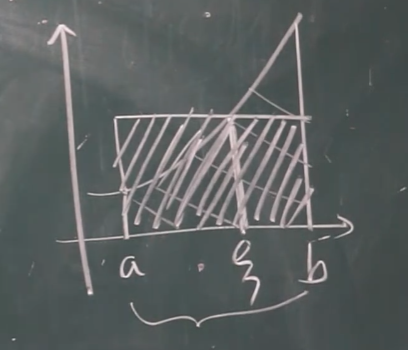 a ξ b